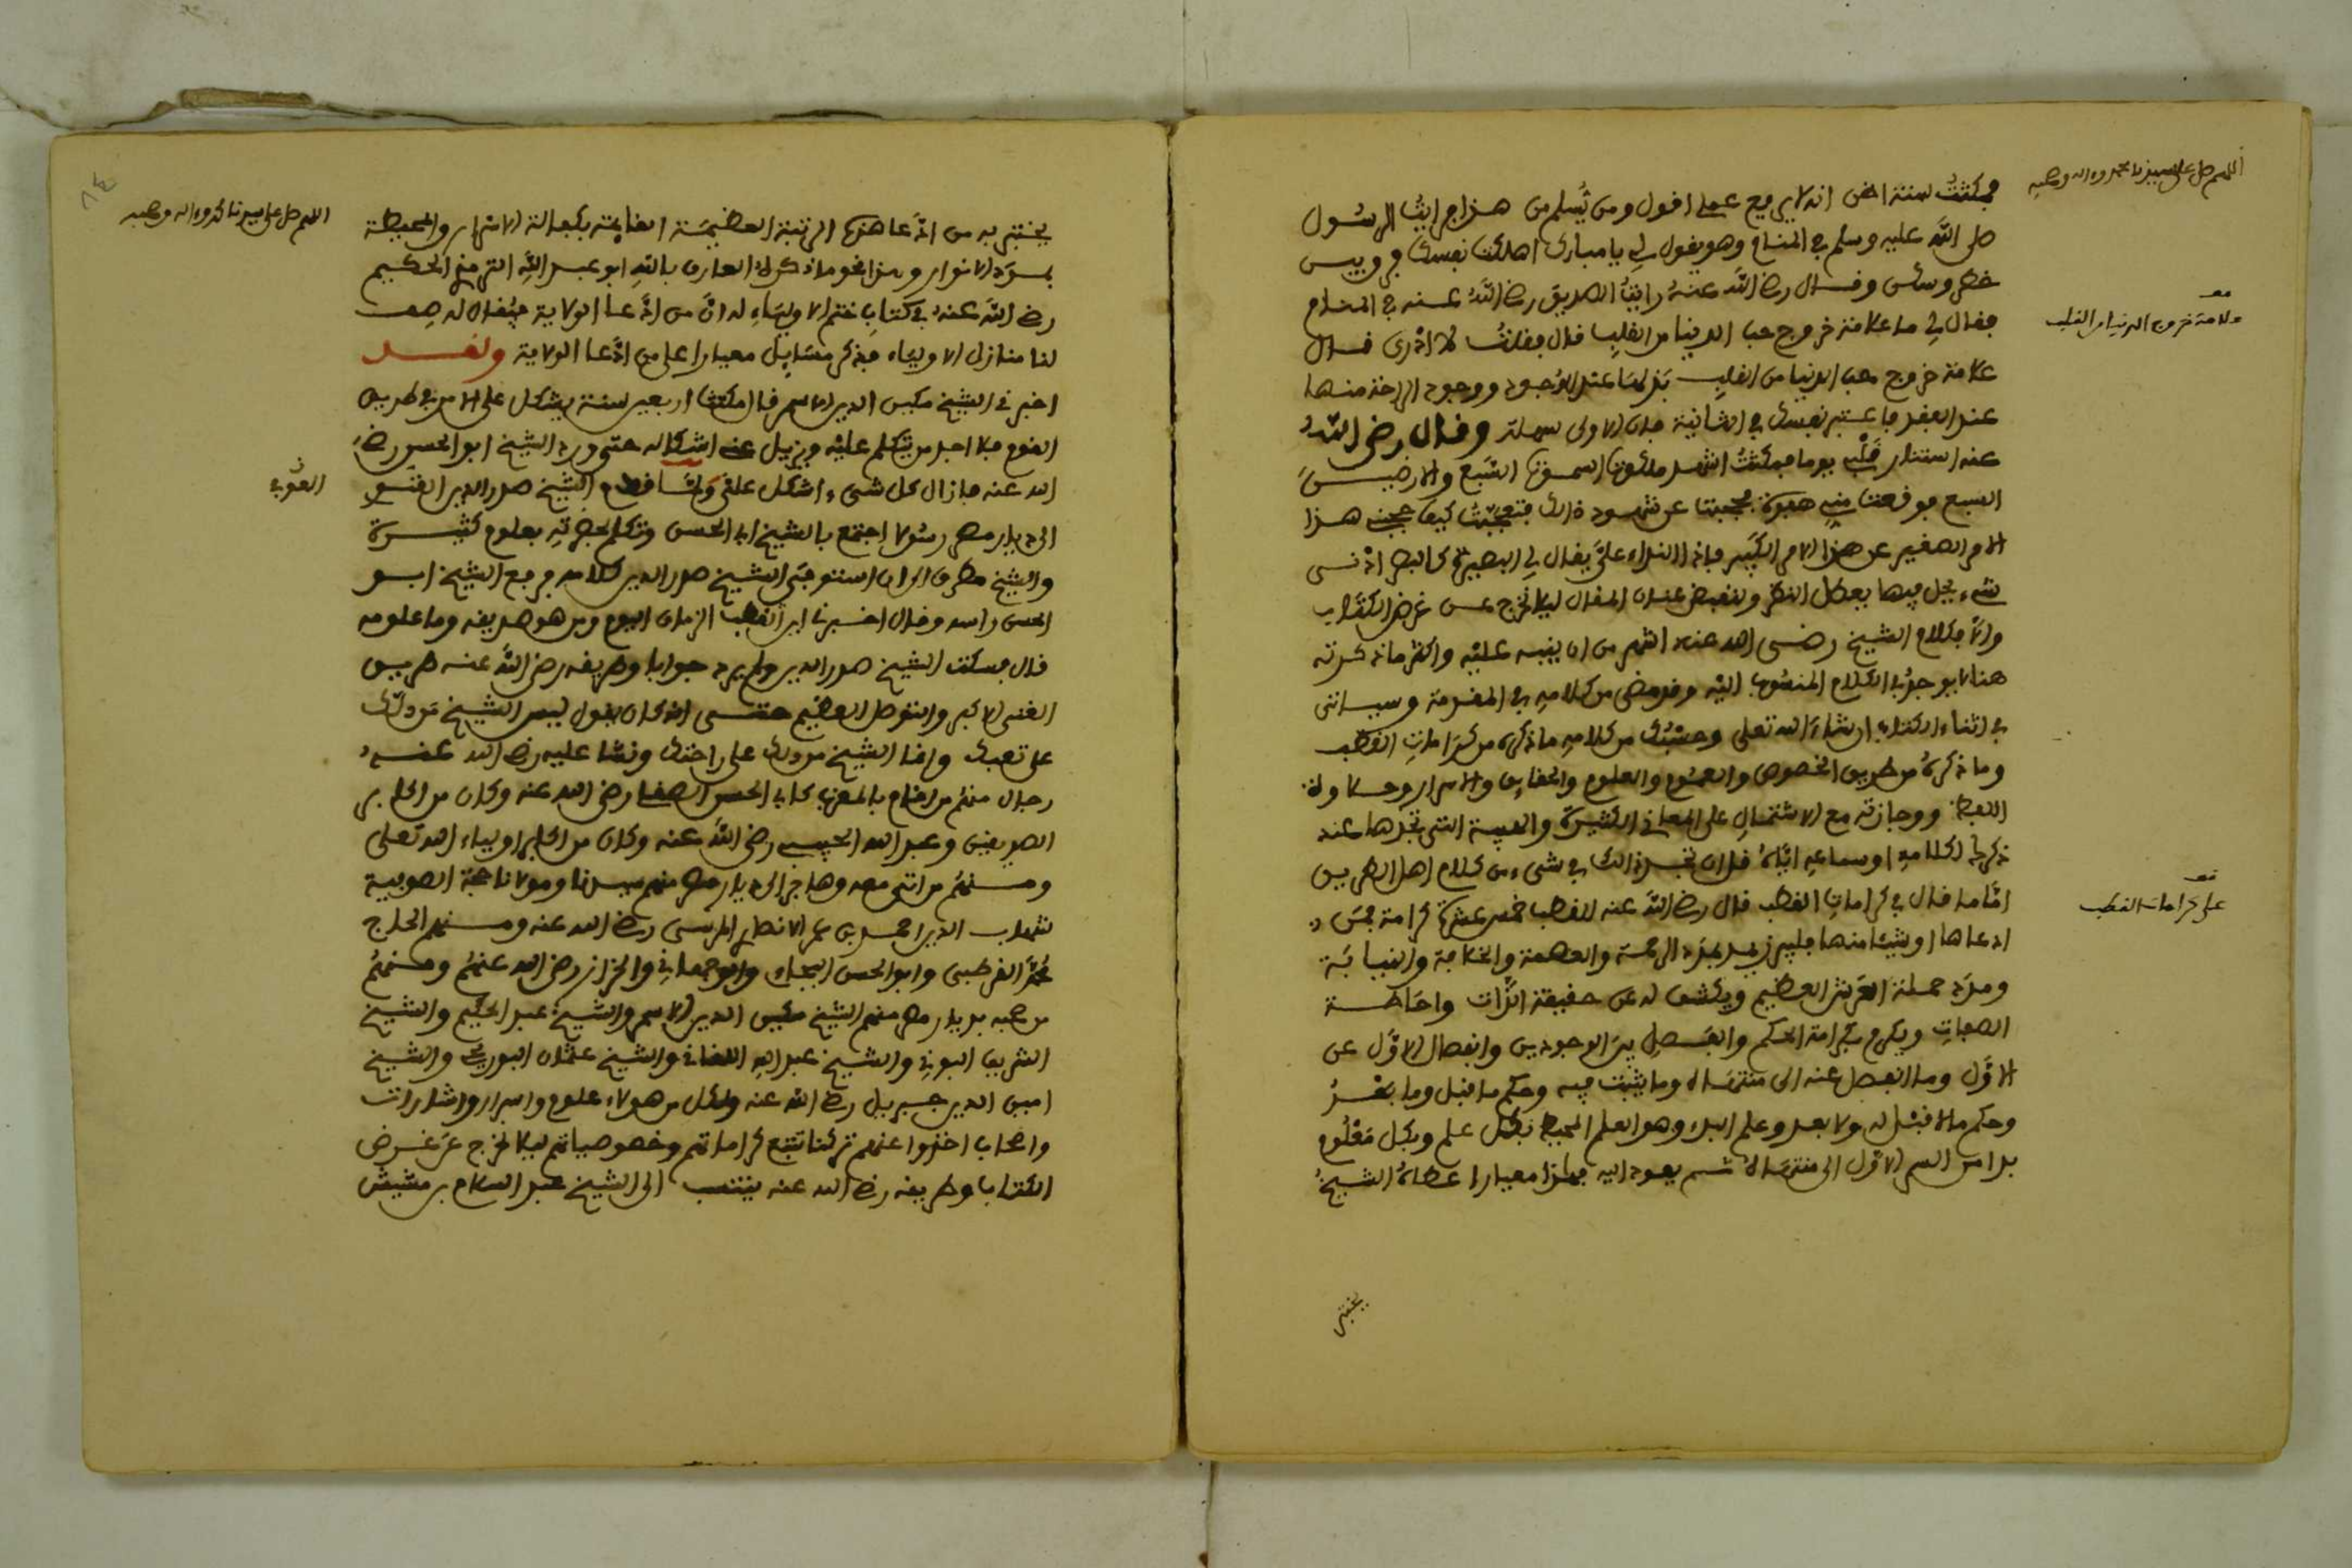 اللهم صل على سيدنا محمد واله وصحبه
فمكثت سنة اظن انه لا يرفع عملي اقول ومن يسلم من هذا فرايت الرسول
صلى الله عليه وسلم في المنام وهو يقول لي يا مبارك اهلكت نفسك فرق بين
خطر وسكن وقال رضى الله عنه رايت الصديق رضى الله عنه في المنام
فقال لي ما علامة خروج حب الدنيا من القلب قال فقلت لا ادرى قال
علامة خروج حب الدنيا من القلب بذلها عند الوجود ووجود الراحة منها
عند الفقد فاعتبر نفسك في الثانية فان الاولى سهلة وقال رضى الله
عنه استنار قلبي يوما فمكثت اشهد ملكوت السموت السبع والارضين
السبع فوقعت مني هفوة فحجبت عن شهود ذلك فتعجبت كيف حجبني هذا
الامر الصغير عن هذا الامر الكبير فاذا النداء علي يقال لي البصيرة كالبصر ادنى
شيء يحل فيها يعطل النظر ولنقبض عنان المقال ليلا نخرج عن غرض الكتاب
والا فكلام الشيخ رضى الله عنه اشهر من ان ينبه عليه واكثر ما ذكرته
هنا لا يوجد في الكلام المنسوب اليه وقد مضى من كلامه في المقدمة وسياتى
في اثناء الكتاب ان شاء الله تعلى وحسبك من كلامه ما ذكره من كرامات القطب
وما ذكره من طريق الخصوص والعموم والعلوم والحقايق والاسرار وحلاوة
اللفظ ووجازته مع الاشتمال على المعاني الكثيرة والهيبة التى تجدها عند
ذكرك لكلامه او سماعه اياه فلان تجد ذلك في شيء من كلام اهل الطريق
اما ما قال في كرامات القطب قال رضى الله عنه للقطب خمس عشرة كرامة فمن
ادعاها او شيئا منها فليبرز بمدد الرحمة والعصمة والخلافة والنيابة
ومدد حملة العرش العظيم ويكشف له عن حقيقة الذات واحاطة
الصفات ويكرم بكرامة الحكم والفصل بين الوجودين وانفصال الاول عن
الاول وما انفصل عنه الى منتهاه وما يثبت فيه وحكم ما قبل وما بعد
وحكم ما لا قبل له ولا بعد وعلم البدء وهو العلم المحيط بكل علم وبكل معلوم
بدا من السر الاول الى منتهاه ثم يعود اليه فهذا معيار اعطاه الشيخ
يختبر
علامة خروج الدنيا من القلب
على كرامات القطب
اللهم صل على سيدنا محمد واله وصحبه
يختبر به من ادعا هذه الرتبة العظيمة القايمة بكفالة الاسرار والمحيطة
بمدد الانوار ومن نحو ما ذكره العارف بالله ابو عبد الله الترمذي الحكيم
رضى الله عنه في كتاب ختم الاولياء له ان من ادعا الولاية فيقال له صف
لنا منازل الاولياء فذكر مسايل معيارا على من ادعا الولاية ولقد
اخبرني الشيخ مكين الدين الاسمر قال مكثت اربعين سنة يشكل علي الامر في طريق
القوم فلا اجد من يتكلم عليه ويزيل عني اشكاله حتى ورد الشيخ ابو الحسن رضي
الله عنه فازال كل شيء اشكل علي ولما قدم الشيخ صدر الدين القنوي
الى ديار مصر رسولا اجتمع بالشيخ ابى الحسن وتكلم بحضرته بعلوم كثيرة
والشيخ مطرق الى ان استوفى الشيخ صدر الدين كلامه فرفع الشيخ ابو
الحسن راسه وقال اخبرنا اين القطب الزمان اليوم ومن هو صديقه وما علومه
قال فسكت الشيخ صدر الدين ولم يرد جوابا وطريقه رضى الله عنه طريق
الغنى الاكبر والتوصل العظيم حتى انه كان يقول ليس الشيخ من دلك
على تعبك وانما الشيخ من دلك على راحتك ونشا عليه رضى الله عنه
رجال منهم من اقام بالمغرب كابي الحسن الصقلي رضى الله عنه وكان من اكابر
الصديقين وعبد الله الحبيبي رضى الله عنه وكان من اكابر اولياء الله تعلى
ومنهم من اتى معه وهاجر الى ديار مصر منهم سيدنا ومولانا حجة الصوفية
شهاب الدين احمد بن عمر الانصارى المرسى رضى الله عنه ومنهم الحاج
محمد القرطبى وابو الحسن البجاءي والوجهاني والخزاز رضى الله عنهم ومنهم
من صحبه بديار مصر منهم الشيخ مكين الدين الاسمر والشيخ عبد الحكيم والشيخ
الشريف البوني والشيخ عبد الله اللقاني والشيخ عثمان البوريحي والشيخ
امين الدين جبريل رضى الله عنه ولكل من هولاء علوم واسرار واشارات
واصحاب اخذوا عنهم تركنا تتبع كراماتهم وخصوصياتهم ليلا نخرج عن غرض
الكتاب وطريقه رضى الله عنه ينتسب الى الشيخ عبد السلام بن مشيش